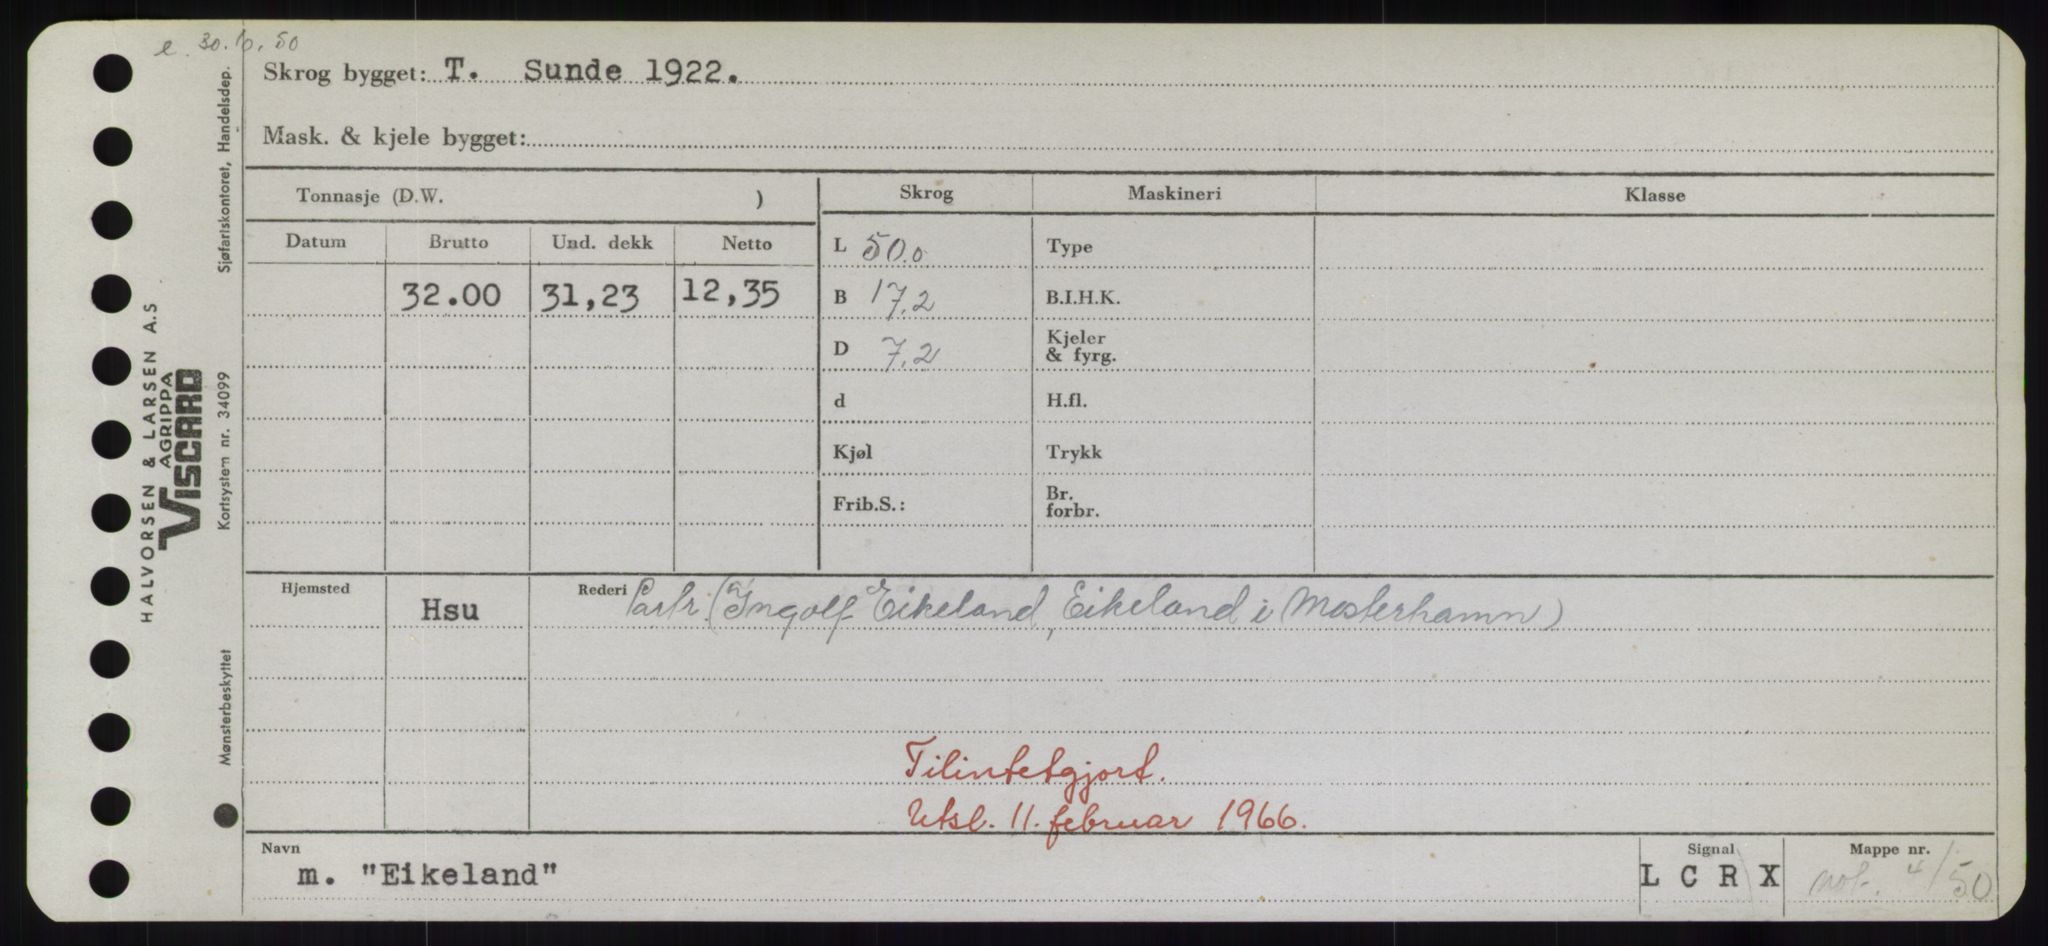 e. 30.10.50
Skrog bygget: T. Sunde 1922.
Mask. & kjele bygget:
Tonnasje (D.W. )
Skrog Maskineri Klasse
Datum Brutto Und. dekk Netto
L 50.0 Type
32.00 31,23 12,35
B 17,2 B.I.H.K.
D 7,2 Kjeler
& fyrg.
d H.fl.
Kjøl Trykk
Frib.S.: Br.
forbr.
Hjemsted Rederi
Hsu Partr. (Ingolf Eikeland, Eikeland i Mosterhamn)
Tilintetgjort.
Utsl. 11. februar 1966.
Navn Signal Mappe nr.
m. "Eikeland" L C R X not. 4/50
HALVORSEN & LARSEN A.S
AGRIPPA
VISCARD
Mønsterbeskyttet Kortsystem nr. 34099 Sjøfartskontoret, Handelsdep.